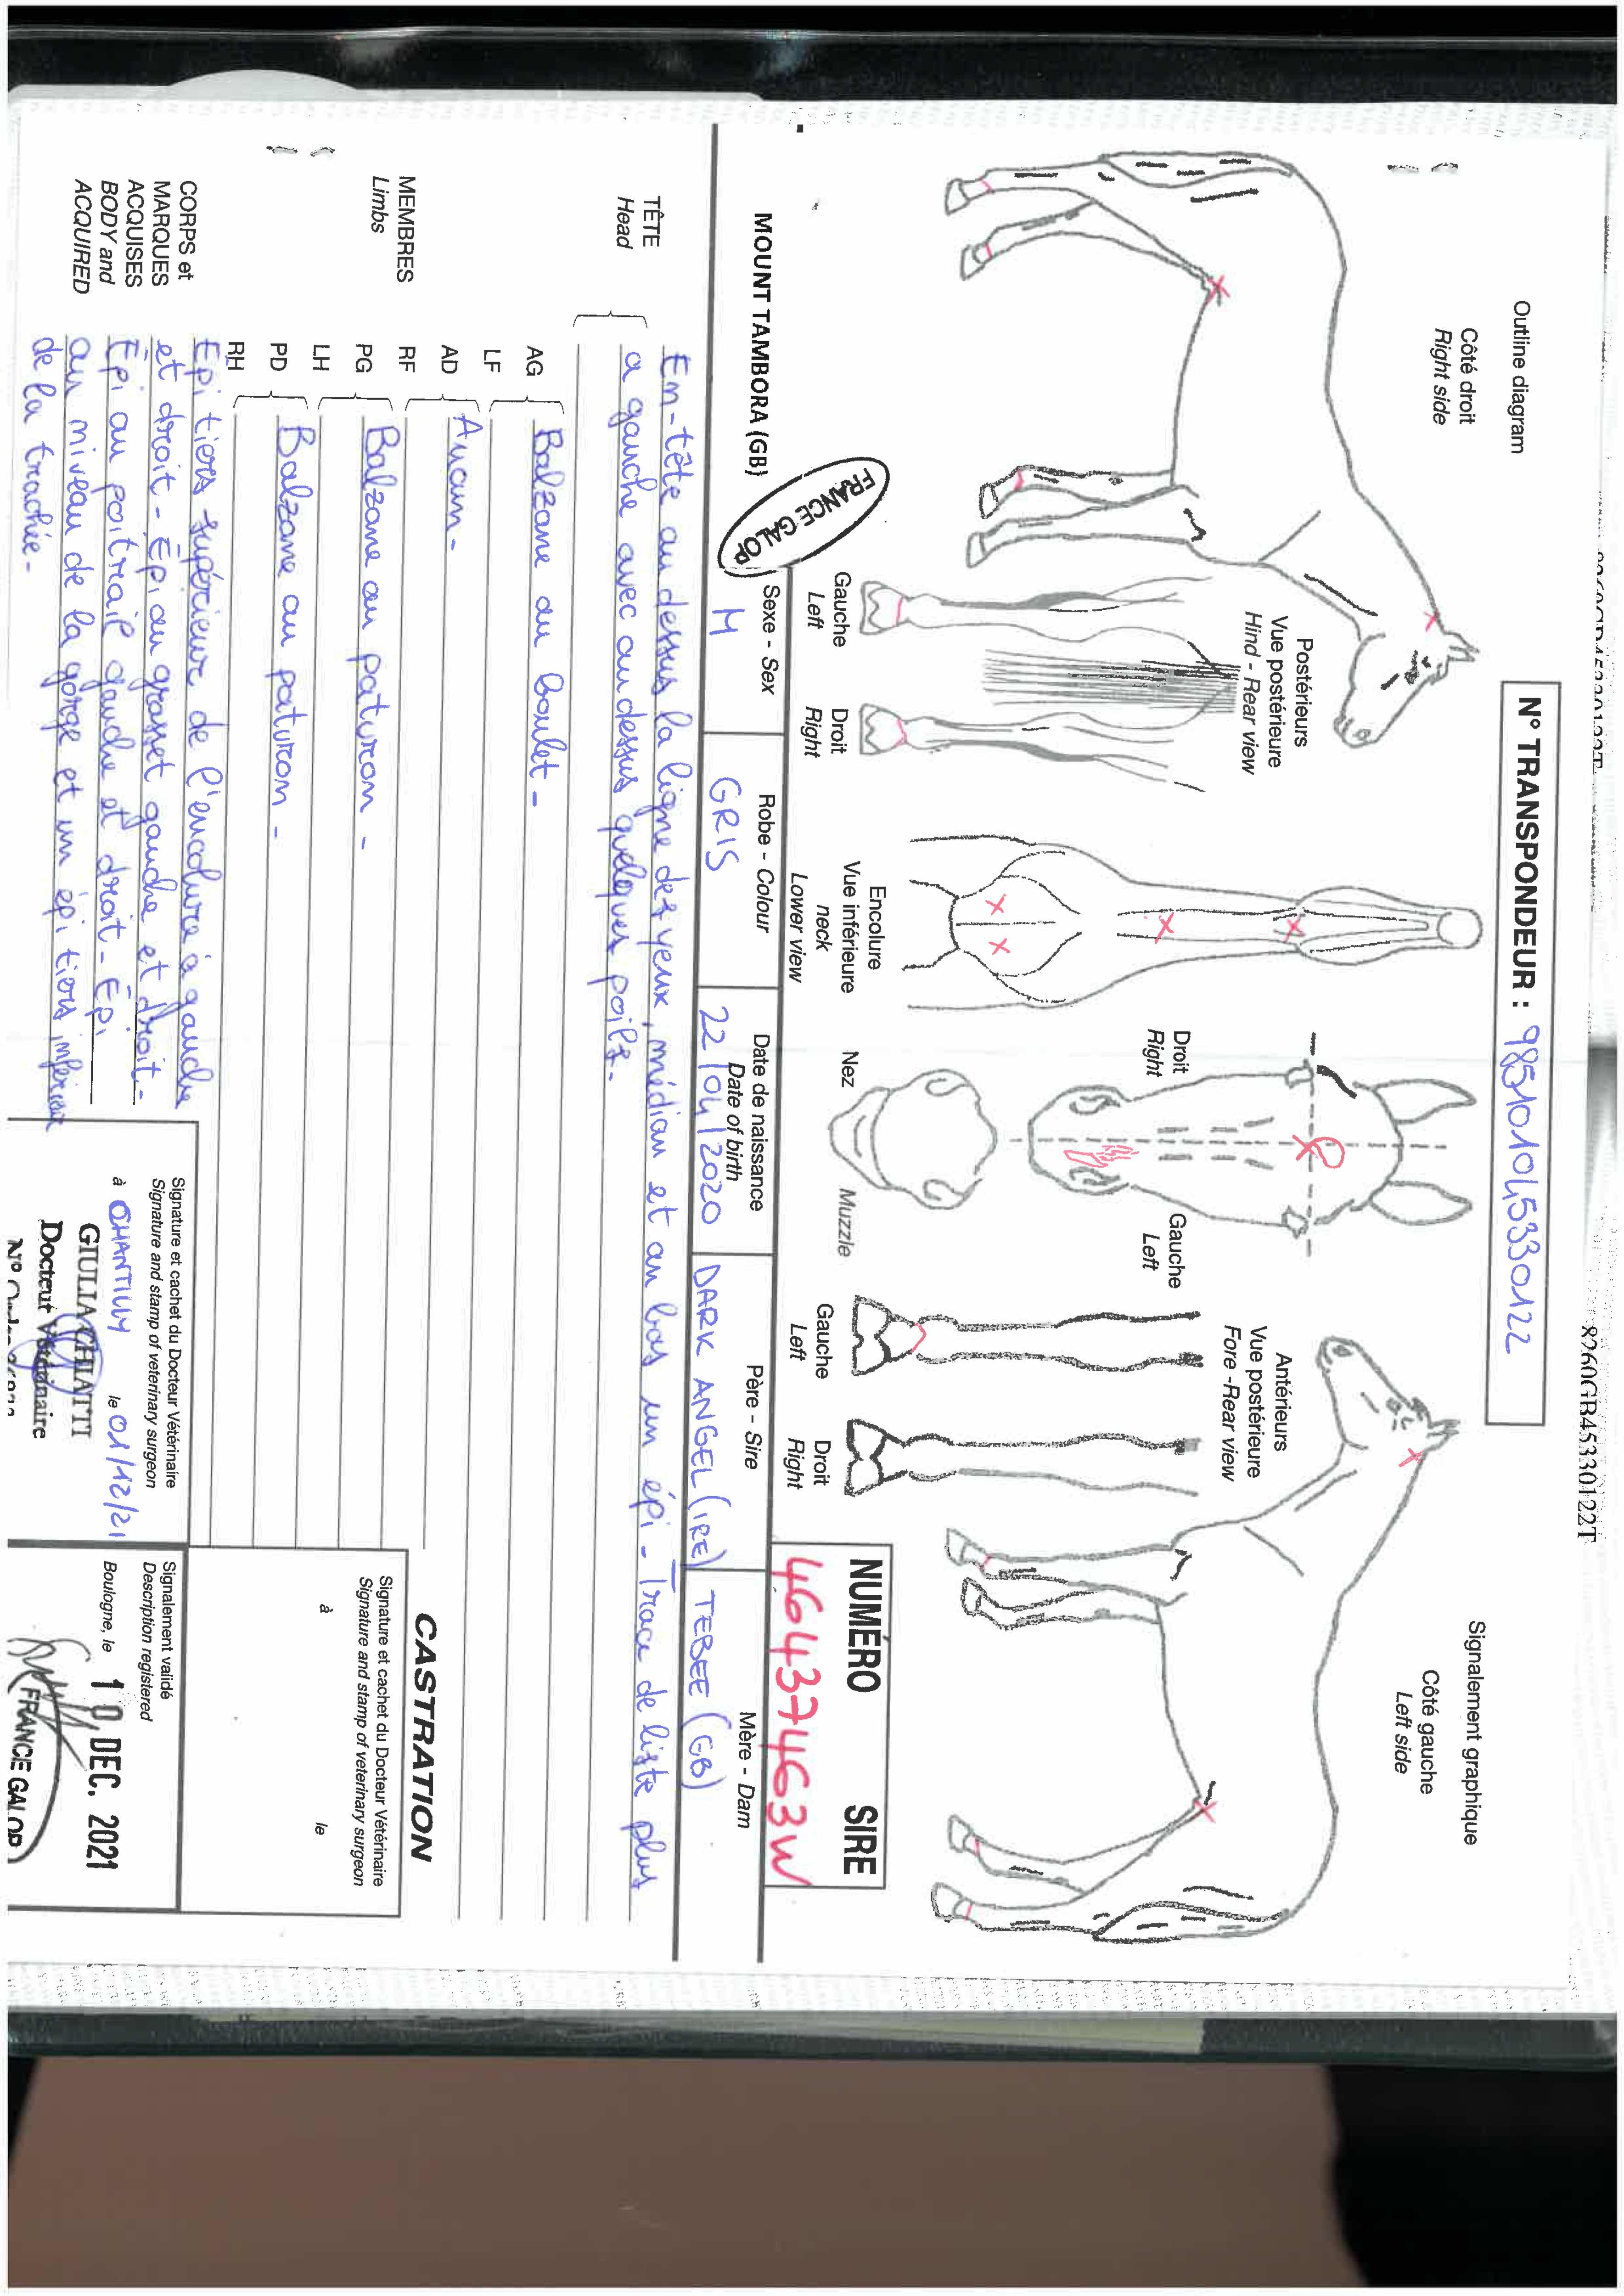 8260GB45330122T
N° TRANSPONDEUR : 985101045330122
Outline diagram
Signalement graphique
Côté droit
Right side
Côté gauche
Left side
Postérieurs
Vue postérieure
Hind - Rear view
Gauche
Left
Droit
Right
Encolure
Vue inférieure
neck
Lower view
Droit
Right
Gauche
Left
Nez
Muzzle
Antérieurs
Vue postérieure
Fore -Rear view
Gauche
Left
Droit
Right
NUMÉRO SIRE
46437463W
FRANCE GALOP
MOUNT TAMBORA (GB)
Sexe - Sex
M
Robe - Colour
GRIS
Date de naissance
Date of birth
22/04/2020
Père - Sire
DARK ANGEL (IRE)
Mère - Dam
TEBEE (GB)
TÊTE
Head
En-tête au dessus la ligne des yeux, médian et au bas un épi - Trace de liste plus
a gauche avec au dessus quelques poils -
MEMBRES
Limbs
AG
LF
Balzane au boulet -
AD
RF
Aucun -
PG
LH
Balzane au paturon -
PD
RH
Balzane au paturon -
CORPS et
MARQUES
ACQUISES
BODY and
ACQUIRED
Epi tiers supérieur de l'encolure à gauche
et droit - Épi au grasset gauche et droit -
Epi au poitrail gauche et droit - Épi
au niveau de la gorge et un épi tiers inférieur
de la trachée -
CASTRATION
Signature et cachet du Docteur Vétérinaire
Signature and stamp of veterinary surgeon
à le
Signature et cachet du Docteur Vétérinaire
Signature and stamp of veterinary surgeon
à CHANTILLY le 01/12/21
GIULIA CHIATTI
Docteur Vétérinaire
N°
Signalement validé
Description registered
Boulogne, le 10 DEC. 2021
FRANCE GALOP